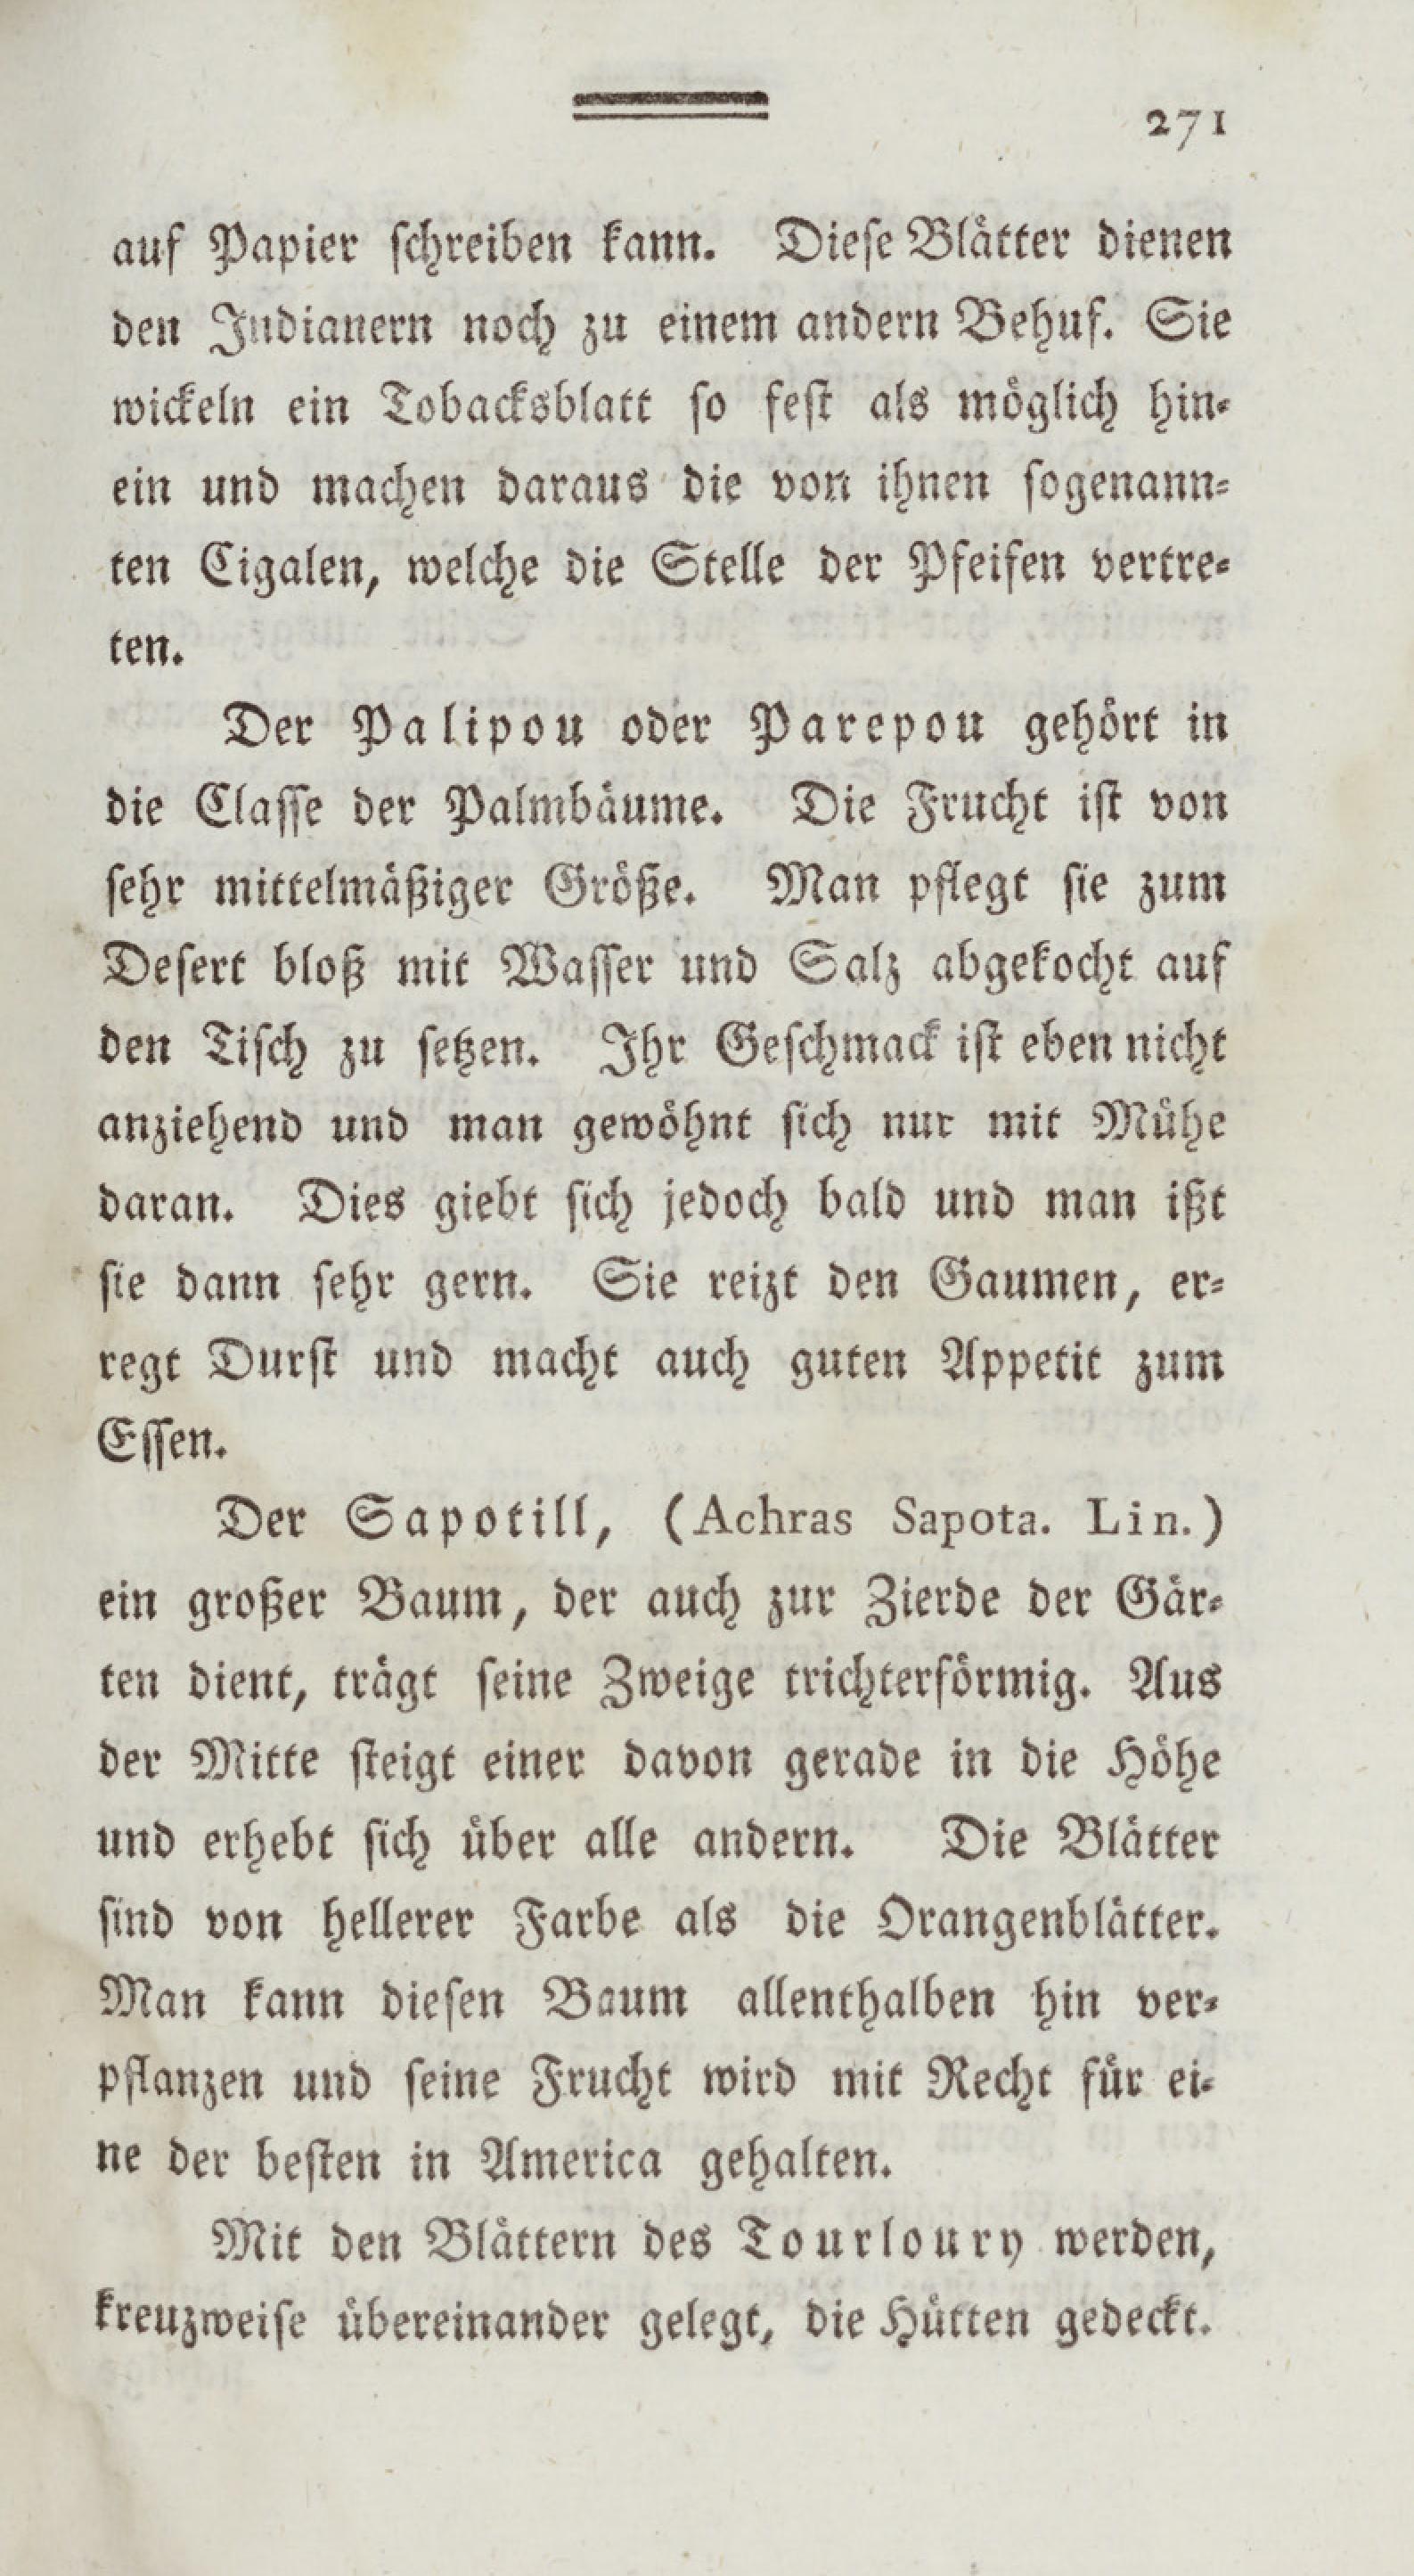 271
auf Papier schreiben kann. Diese Blätter dienen
den Indianern noch zu einem andern Behuf. Sie
wickeln ein Tobacksblatt so fest als möglich hin-
ein und machen daraus die von ihnen sogenann-
ten Cigalen, welche die Stelle der Pfeifen vertre-
ten.
Der Palipou oder Parepou gehört in
die Classe der Palmbäume. Die Frucht ist von
sehr mittelmäßiger Größe. Man pflegt sie zum
Desert bloß mit Wasser und Salz abgekocht auf
den Tisch zu setzen. Ihr Geschmack ist eben nicht
anziehend und man gewöhnt sich nur mit Mühe
daran. Dies giebt sich jedoch bald und man ißt
sie dann sehr gern. Sie reizt den Gaumen, er-
regt Durst und macht auch guten Appetit zum
Essen.
Der Sapotill, (Achras Sapota. Lin.)
ein großer Baum, der auch zur Zierde der Gär-
ten dient, trägt seine Zweige trichterförmig. Aus
der Mitte steigt einer davon gerade in die Höhe
und erhebt sich über alle andern. Die Blätter
sind von hellerer Farbe als die Orangenblätter.
Man kann diesen Baum allenthalben hin ver-
pflanzen und seine Frucht wird mit Recht für ei-
ne der besten in America gehalten.
Mit den Blättern des Tourloury werden,
kreuzweise übereinander gelegt, die Hütten gedeckt.